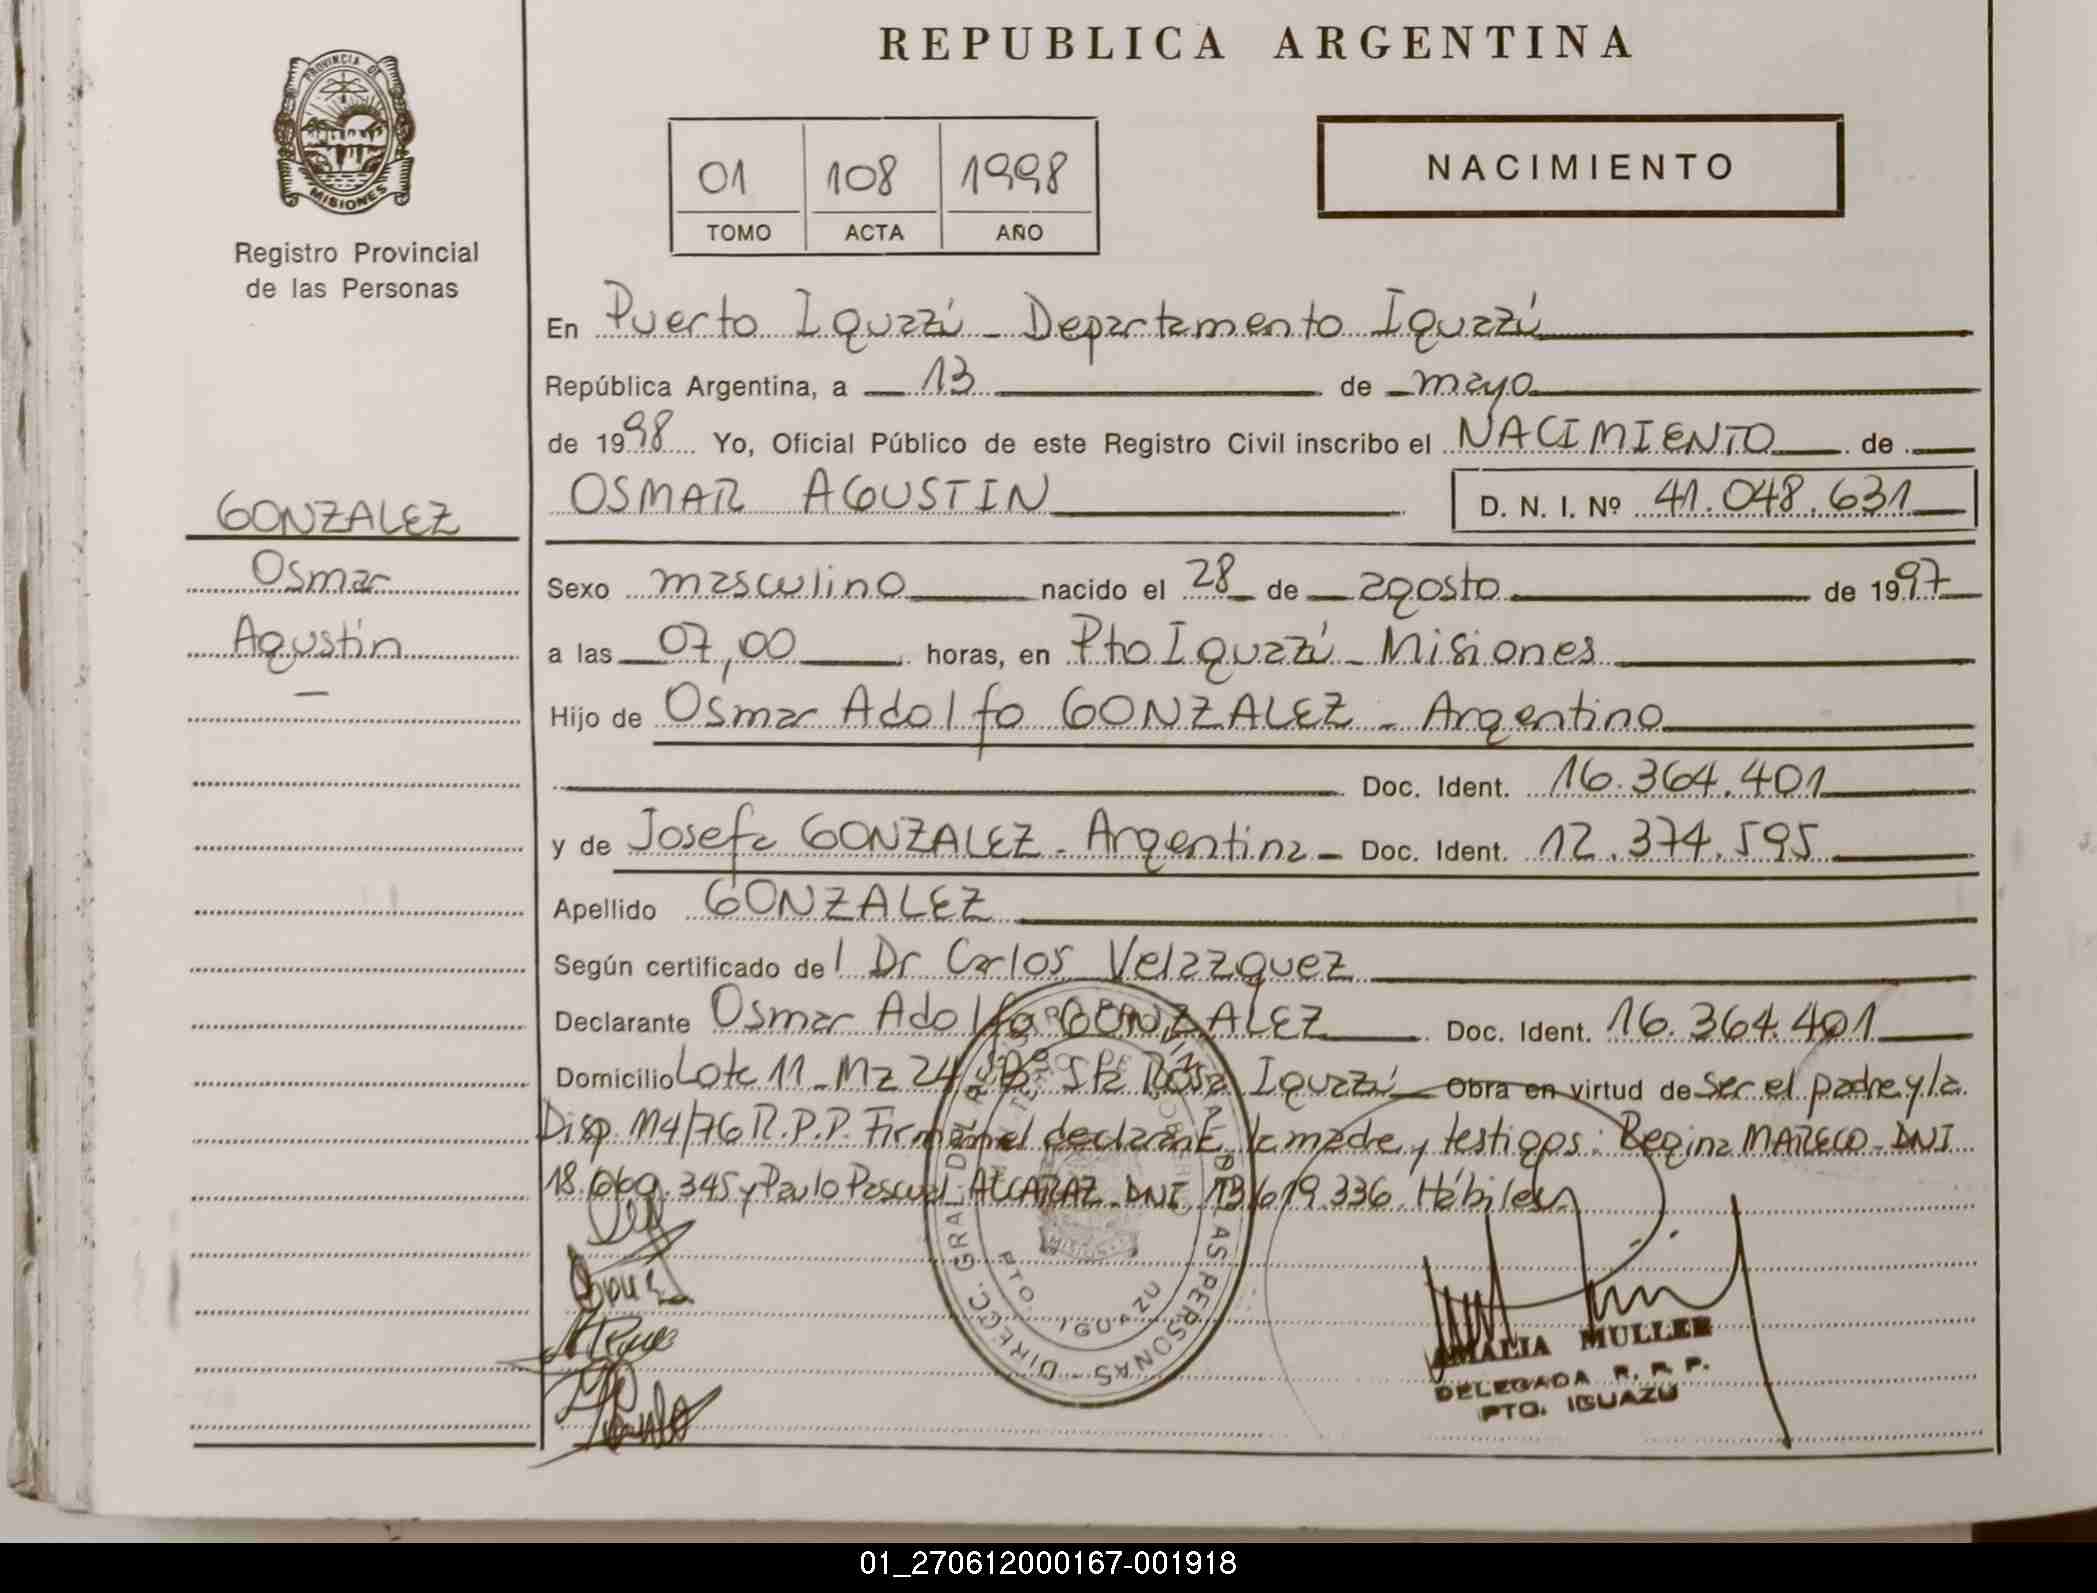 REPUBLICA ARGENTINA
PROVINCIA DE
MISIONES
Registro Provincial
de las Personas
01 108 1998
TOMO ACTA AÑO
NACIMIENTO
En Puerto Iguazú - Departamento Iguazú
República Argentina, a 13 de mayo
de 1998 Yo, Oficial Público de este Registro Civil inscribo el NACIMIENTO de
OSMAR AGUSTIN D. N. I. Nº 41.048.631
GONZALEZ
Osmar
Agustín
Sexo masculino nacido el 28 de agosto de 1997
a las 07,00 horas, en Pto Iguazú - Misiones
Hijo de Osmar Adolfo GONZALEZ - Argentino
Doc. Ident. 16.364.401
y de Josefa GONZALEZ - Argentina - Doc. Ident. 12.374.595
Apellido GONZALEZ
Según certificado del Dr Carlos Velazquez
Declarante Osmar Adolfo GONZALEZ Doc. Ident. 16.364.401
Domicilio Lote 11 - Mz 24 Bº Sta Rosa Iguazú Obra en virtud de ser el padre y la
Disp. 114/76 R.P.P. Firman el declarante, la madre y testigos: Regina MARECO - DNI
18. .345 y Paulo Pascual ALCARAZ - DNI 13.619.336. Hábiles
DIRECC. GRAL. DEL REG. PROV. DE LAS PERSONAS
PTO. IGUAZU
MISIONES
AMALIA MULLER
DELEGADA R. P. P.
PTO. IGUAZU
01_270612000167-001918